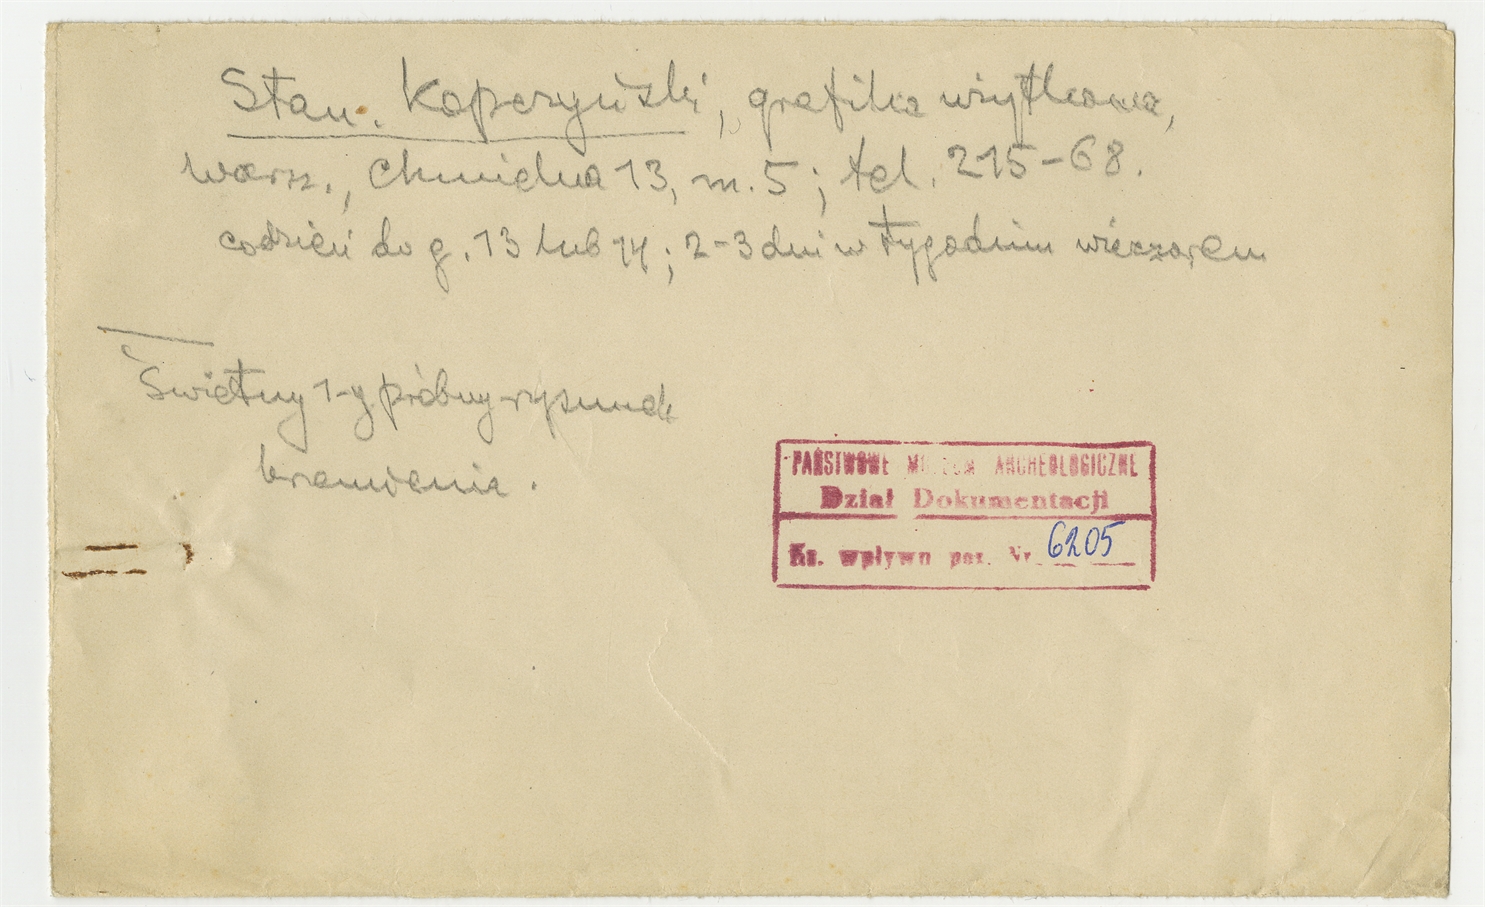 Stan. Kopczyński, grafika użytkowa,
Warsz., Chmielna 13, m. 5; tel. 215-68.
codzień do g. 13 lub 14; 2-3 dni w tygodniu wieczorem
Świetny 1-y próbny rysunek
krzemienia.
PAŃSTWOWE MUZEUM ARCHEOLOGICZNE
Dział Dokumentacji
Ks. wpływu poz. Nr 6205